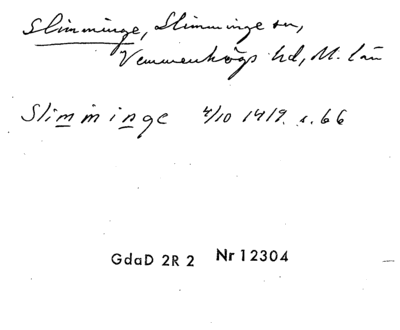 Slimminge, Slimminge sn,
Vemmenhögs hd, M. län
Slimminge 4/10 1419. s. 66
GdaD 2R 2 Nr 12304